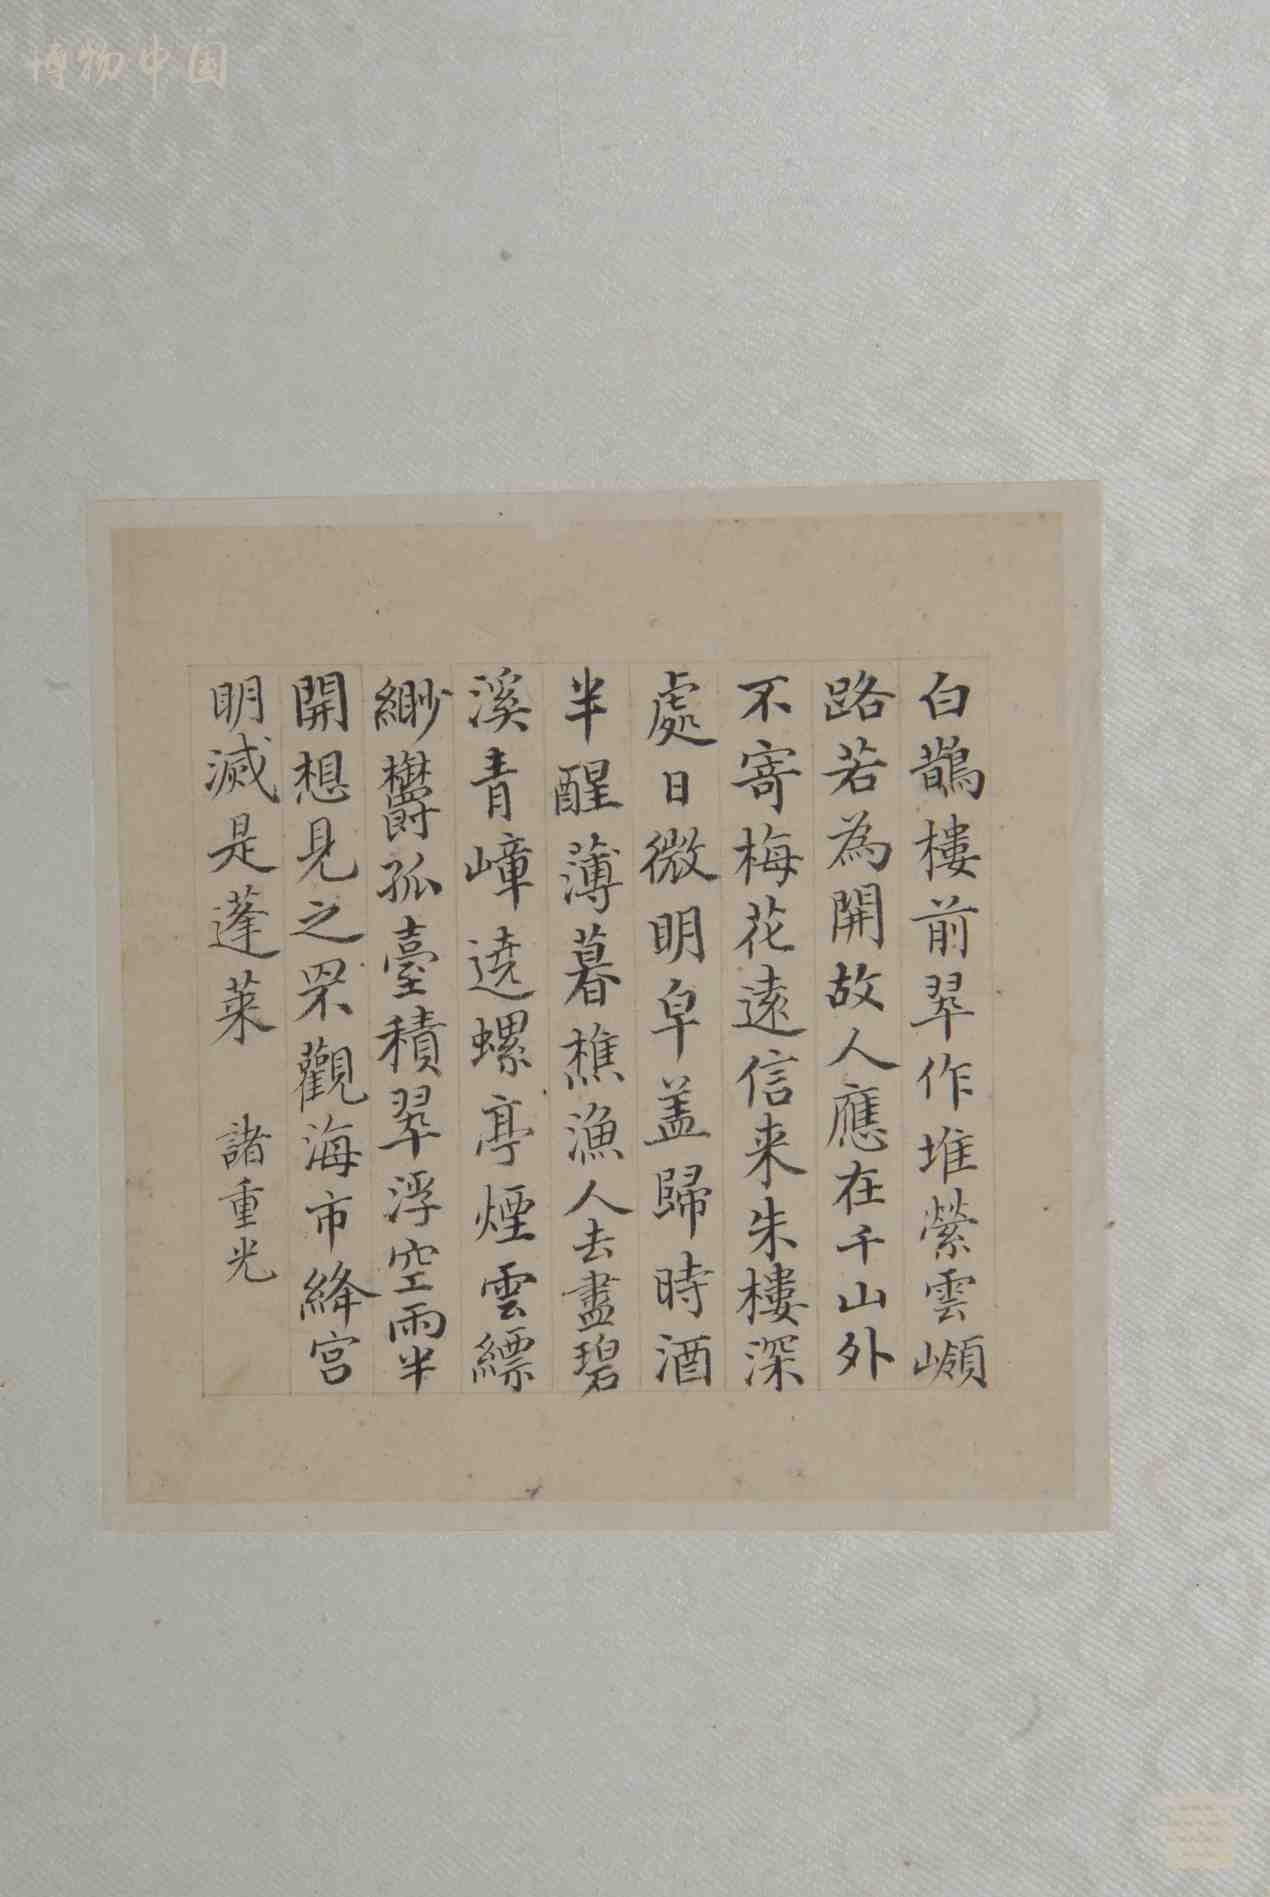 博物中国
白鵲樓前翠作堆縈雲嶺
路若為開故人應在千山外
不寄梅花遠信来朱樓深
處日微明皁盖歸時酒
半醒薄暮樵漁人去盡碧
溪青嶂遶螺亭煙雲縹
緲欝孤臺積翠浮空雨半
開想見之罘觀海市絳宫
明滅是蓬萊 諸重光